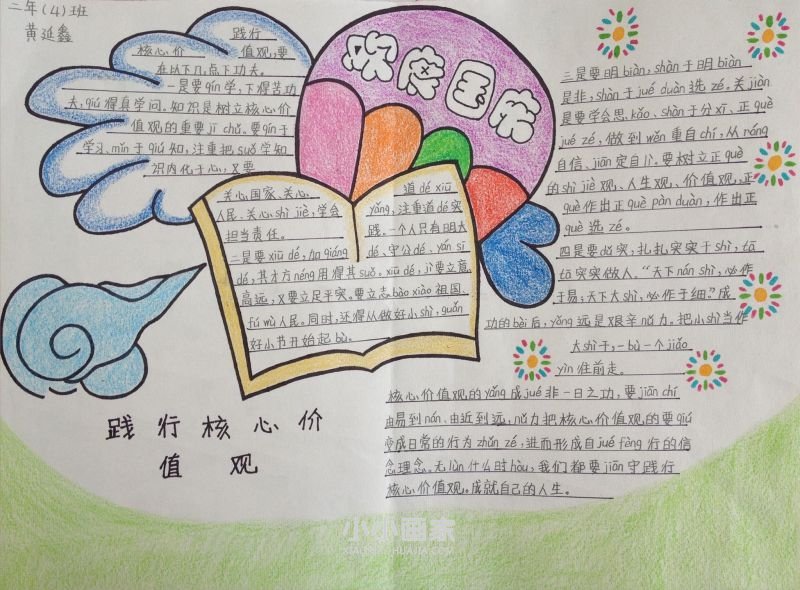 二年(4)班
黄延鑫
欢度国庆
践行
核心价值观,要
在以下几点下功夫。
一是要qín学,下得苦功
夫,qiú得真学问。知识是树立核心价
值观的重要jī chǔ。要qín于
学习、mǐn于qiú知,注重把suǒ学知
识内化于心,又要
关心国家、关心
人民、关心shì jiè,学会
担当责任。
二是要xiū dé,加qiáng
道dé xiū
yǎng,注重道dé实
践。一个人只有明大
dé、守公dé、yán sī
dé,其才方néng用得其suǒ。xiū dé,jì要立意
高远,又要立足平实。要立志bào xiào祖国、
fú wù人民。同时,还得从做好小shì,guǎn
好小节开始起bù。
三是要明biàn,shàn于明biàn
是非,shàn于jué duàn选zé。关jiàn
是要学会思kǎo、shàn于分xī、正què
jué zé,做到wěn重自chí,从róng
自信、jiān定自
。要树立正què
的shì jiè观、人生观、价值观,正
què作出正què pàn duàn,作出正
què选zé。
四是要dǔ实,扎扎实实干shì,tā
tā实实做人。“天下nán shì,必作
于易;天下大shì,必作于细。”成
功的bèi后,yǒng远是艰辛nǔ力。把小shì当作
大shì干,一bù一个jiǎo
yìn往前走。
核心价值观的yǎng成jué非一日之功,要jiān chí
由易到nán、由近到远,nǔ力把核心价值观的要qiú
变成日常的行为zhǔn zé,进而形成自jué fèng行的信
念理念。无lùn什么时hòu,我们都要jiān守践行
核心价值观。成就自己的人生。
践行核心价
值观
小小画家
XIAOXIAOHUAJIA.COM